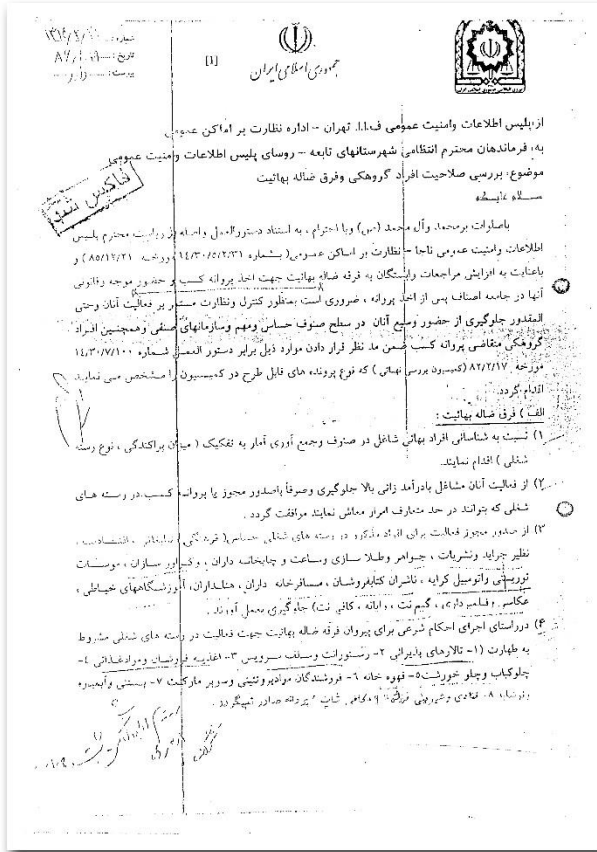 شماره:
تاریخ:
پیوست:
[1]
جمهوری اسلامی ایران
از: پلیس اطلاعات وامنیت عمومی ف.ا.ا. تهران – اداره نظارت بر اماکن عمومی
به: فرماندهان محترم انتظامی شهرستانهای تابعه – روسای پلیس اطلاعات وامنیت عمومی
موضوع: بررسی صلاحیت افراد گروهکی وفرق ضاله بهائیت
فاکس شد
سلام علیکم
باصلوات برمحمد وآل محمد (ص) وبا احترام ، به استناد دستورالعمل واصله از ریاست محترم پلیس
اطلاعات وامنیت عمومی ناجا – نظارت بر اماکن عمومی( بشماره ۱۴/۳۰/۵/۲/۳۱ ورخه ۸۵/۱۲/۲۱ ) و
باعنایت به افزایش مراجعات وابستگان به فرقه ضاله بهائیت جهت اخذ پروانه کسب و حضور موجه وقانونی
آنها در جامعه اصناف پس از اخذ پروانه ، ضروری است بمنظور کنترل ونظارت مستمر بر فعالیت آنان وحتی
المقدور جلوگیری از حضور وسیع آنان در سطح صنوف حساس ومهم وسازمانهای صنفی وهمچنین افراد
گروهکی متقاضی پروانه کسب ضمن مد نظر قرار دادن موارد ذیل برابر دستور العمل شماره ۱۴/۳۰/۷/۱۰۰
مورخه ۸۲/۲/۱۷ (کمیسیون بررسی نهائی ) که نوع پرونده های قابل طرح در کمیسیون را مشخص می نماید
اقدام گردد.
الف ) فرق ضاله بهائیت :
۱) نسبت به شناسائی افراد بهائی شاغل در صنوف وجمع آوری آمار به تفکیک ( میزان پراکندگی ، نوع رسته
شغلی ) اقدام نمایند.
۲) از فعالیت آنان مشاغل بادرآمد زائی بالا جلوگیری وصرفاً باصدور مجوز یا پروانه کسب در رسته های
شغلی که بتوانند در حد متعارف امرار معاش نمایند موافقت گردد .
۳) از صدور مجوز فعالیت برای افراد مذکور در رسته های شغلی حساس( فرهنگی ، تبلیغاتی ، اقتصادی) ،
نظیر جراید ونشریات ، جواهر وطلا سازی وساعت و چاپخانه داران ، وگراور سازان ، موسسات
توریستی واتومبیل کرایه ، ناشران کتابفروشان ، مسافرخانه داران ، هتلداران، آموزشگاههای خیاطی ،
عکاسی وفیلمبرداری ، گیم نت ، رایانه ، کافی نت) جلوگیری بعمل آورند .
۴) درراستای اجرای احکام شرعی برای پیروان فرقه ضاله بهائیت جهت فعالیت در رسته های شغلی مشروط
به طهارت (۱- تالارهای پذیرائی ۲- رستورانت وسلف سرویس ۳- اغذیه فروشان وموادغذائی ۴-
چلوکباب وچلو خورشت۵- قهوه خانه ۶- فروشندگان موادپروتئینی وسوپر مارکت ۷- بستنی وآبمیوه
۸- قنادی وشیرینی فروشی ۹- کافی شاپ ) پروانه صادر نمیگردد .